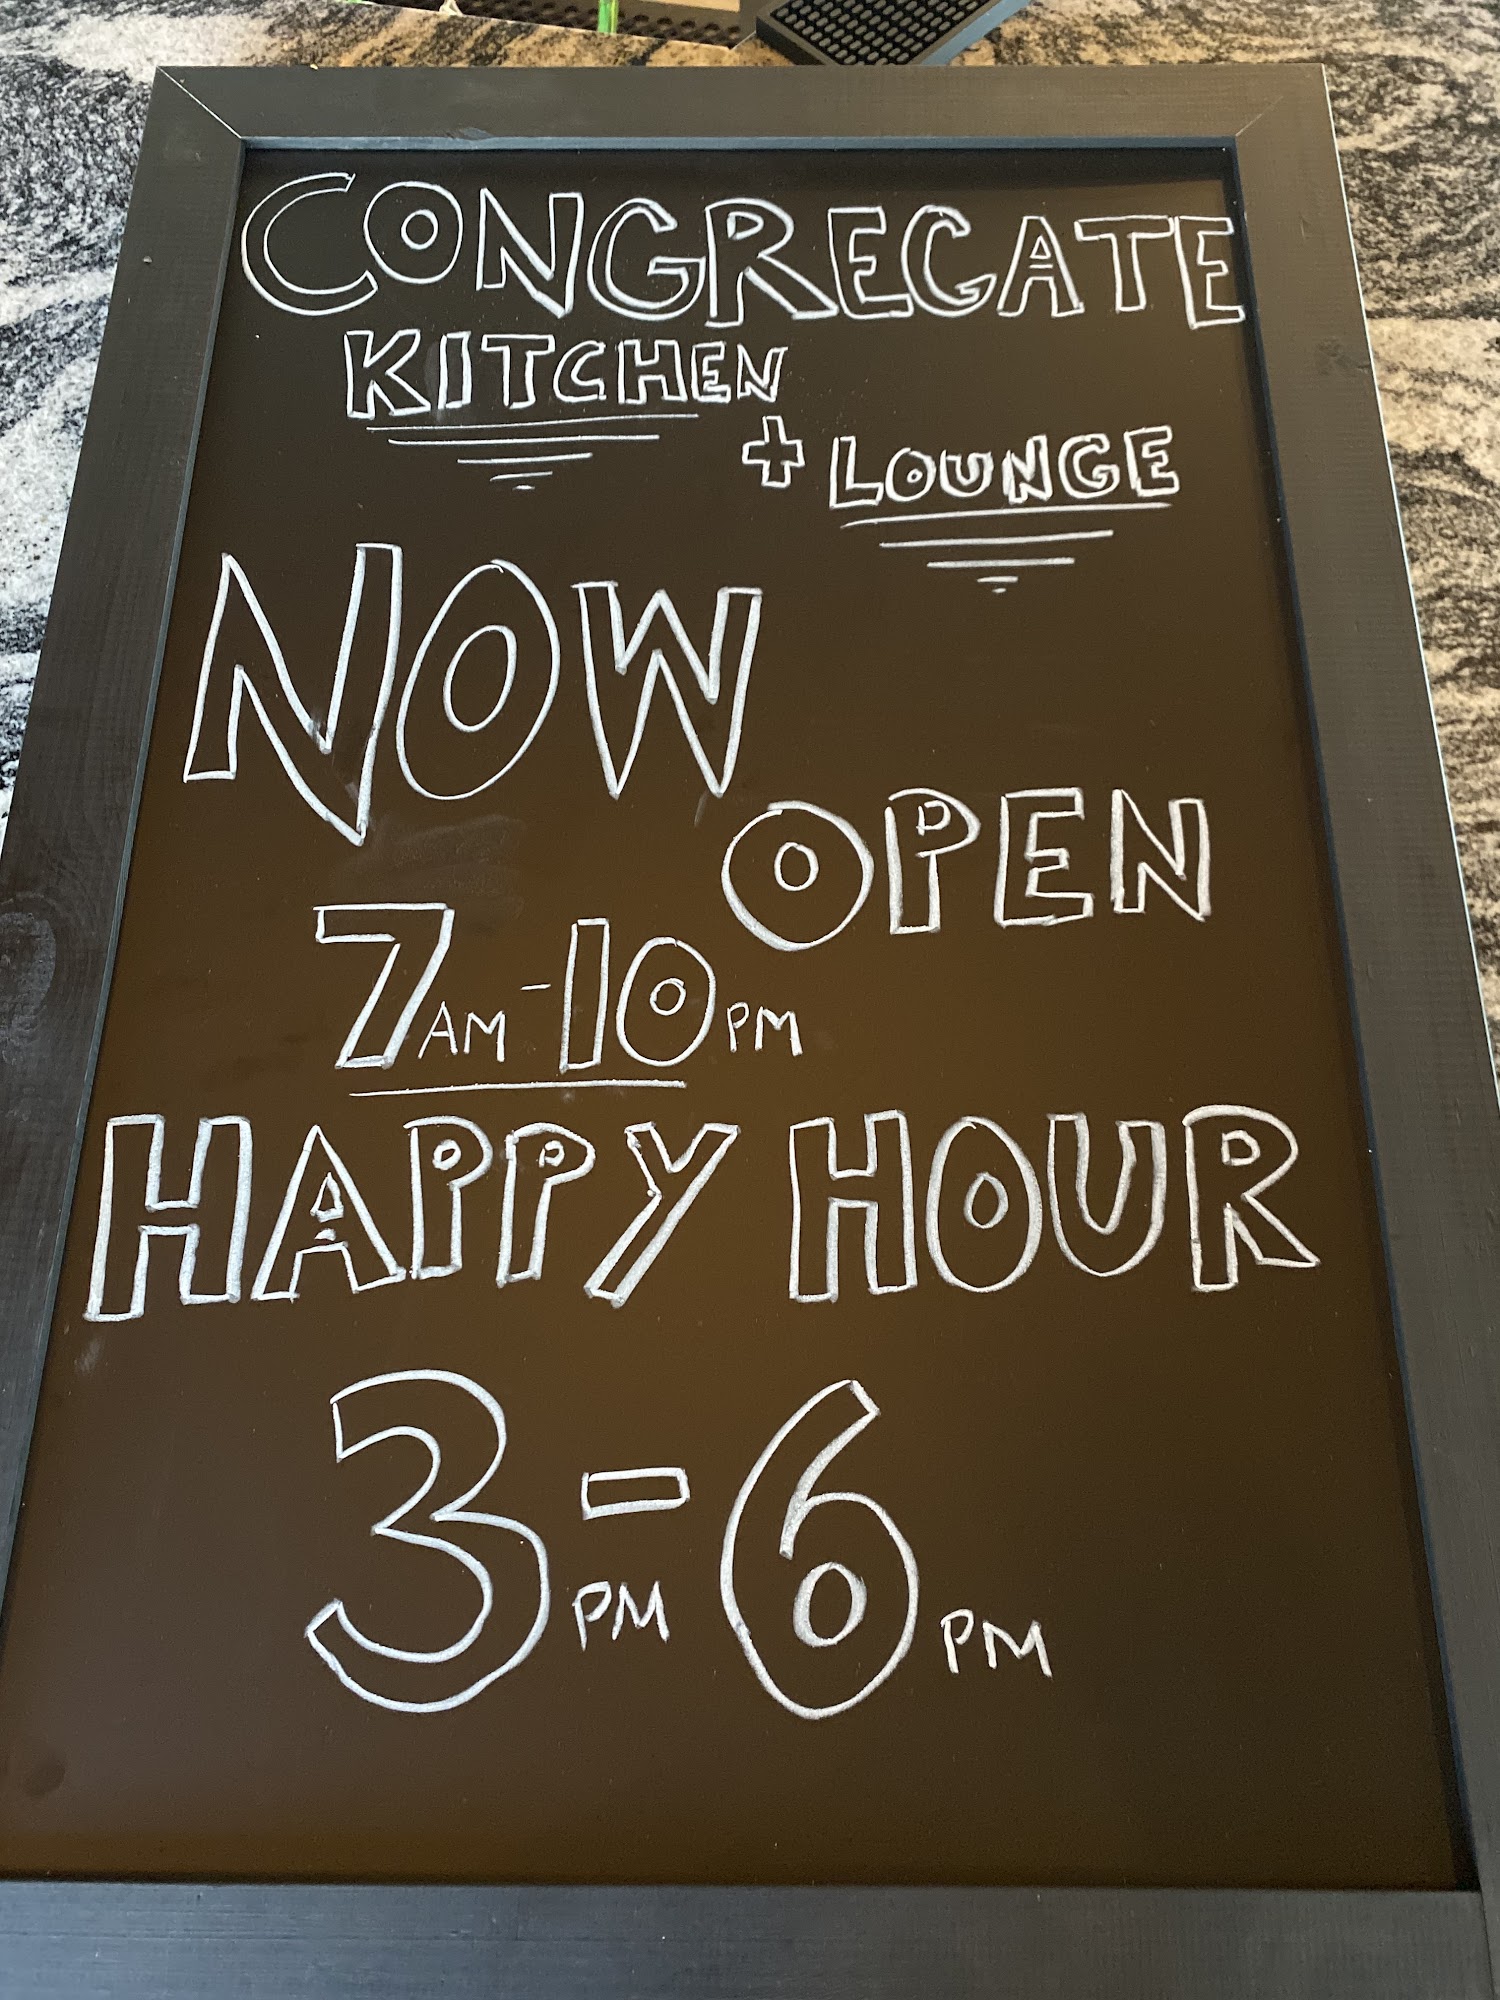 CONGREGATE
KITCHEN
+ LOUNGE
NOW
OPEN
7AM-10PM
HAPPY HOUR
3PM-6PM